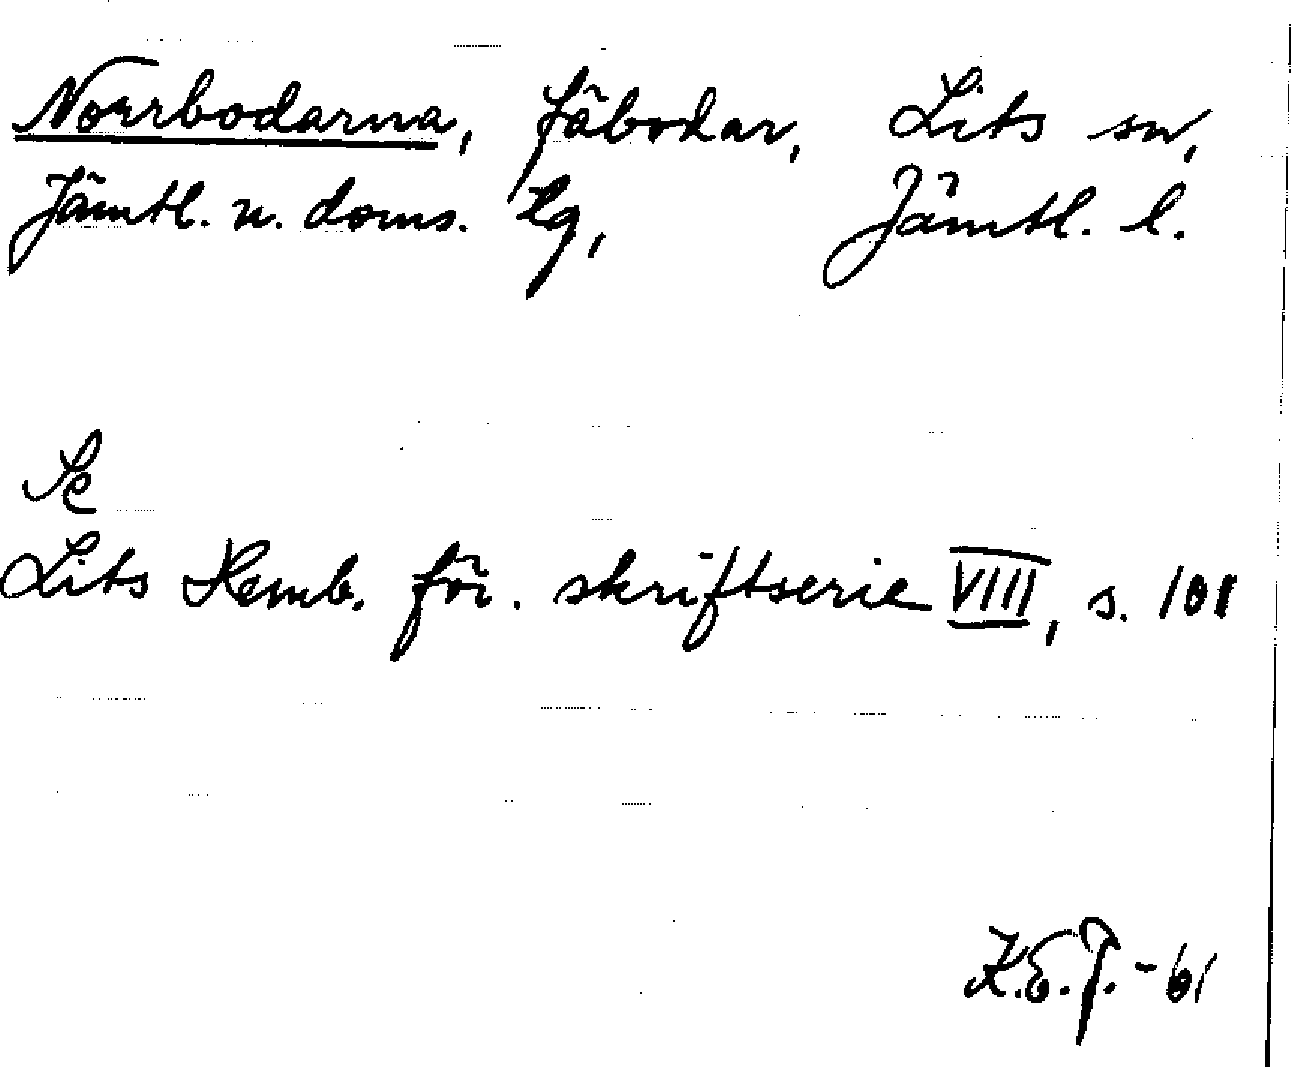 Norrbodarna, fäbodar, Lits sn,
Jämtl. n. doms. lg, Jämtl. l.
Se
Lits Hemb. för. skriftserie VIII, s. 101
K.E.J. -61